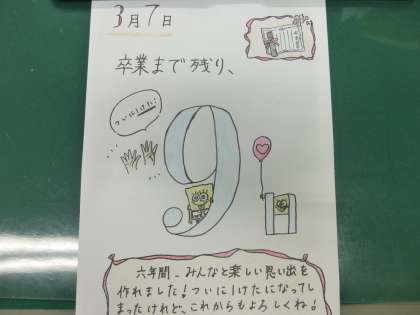 3月7日
卒業まで残り、
ついに1けた!
9
六年間、みんなと楽しい思い出を
作れました!ついに1けたになってし
まったけれど、これからもよろしくね!